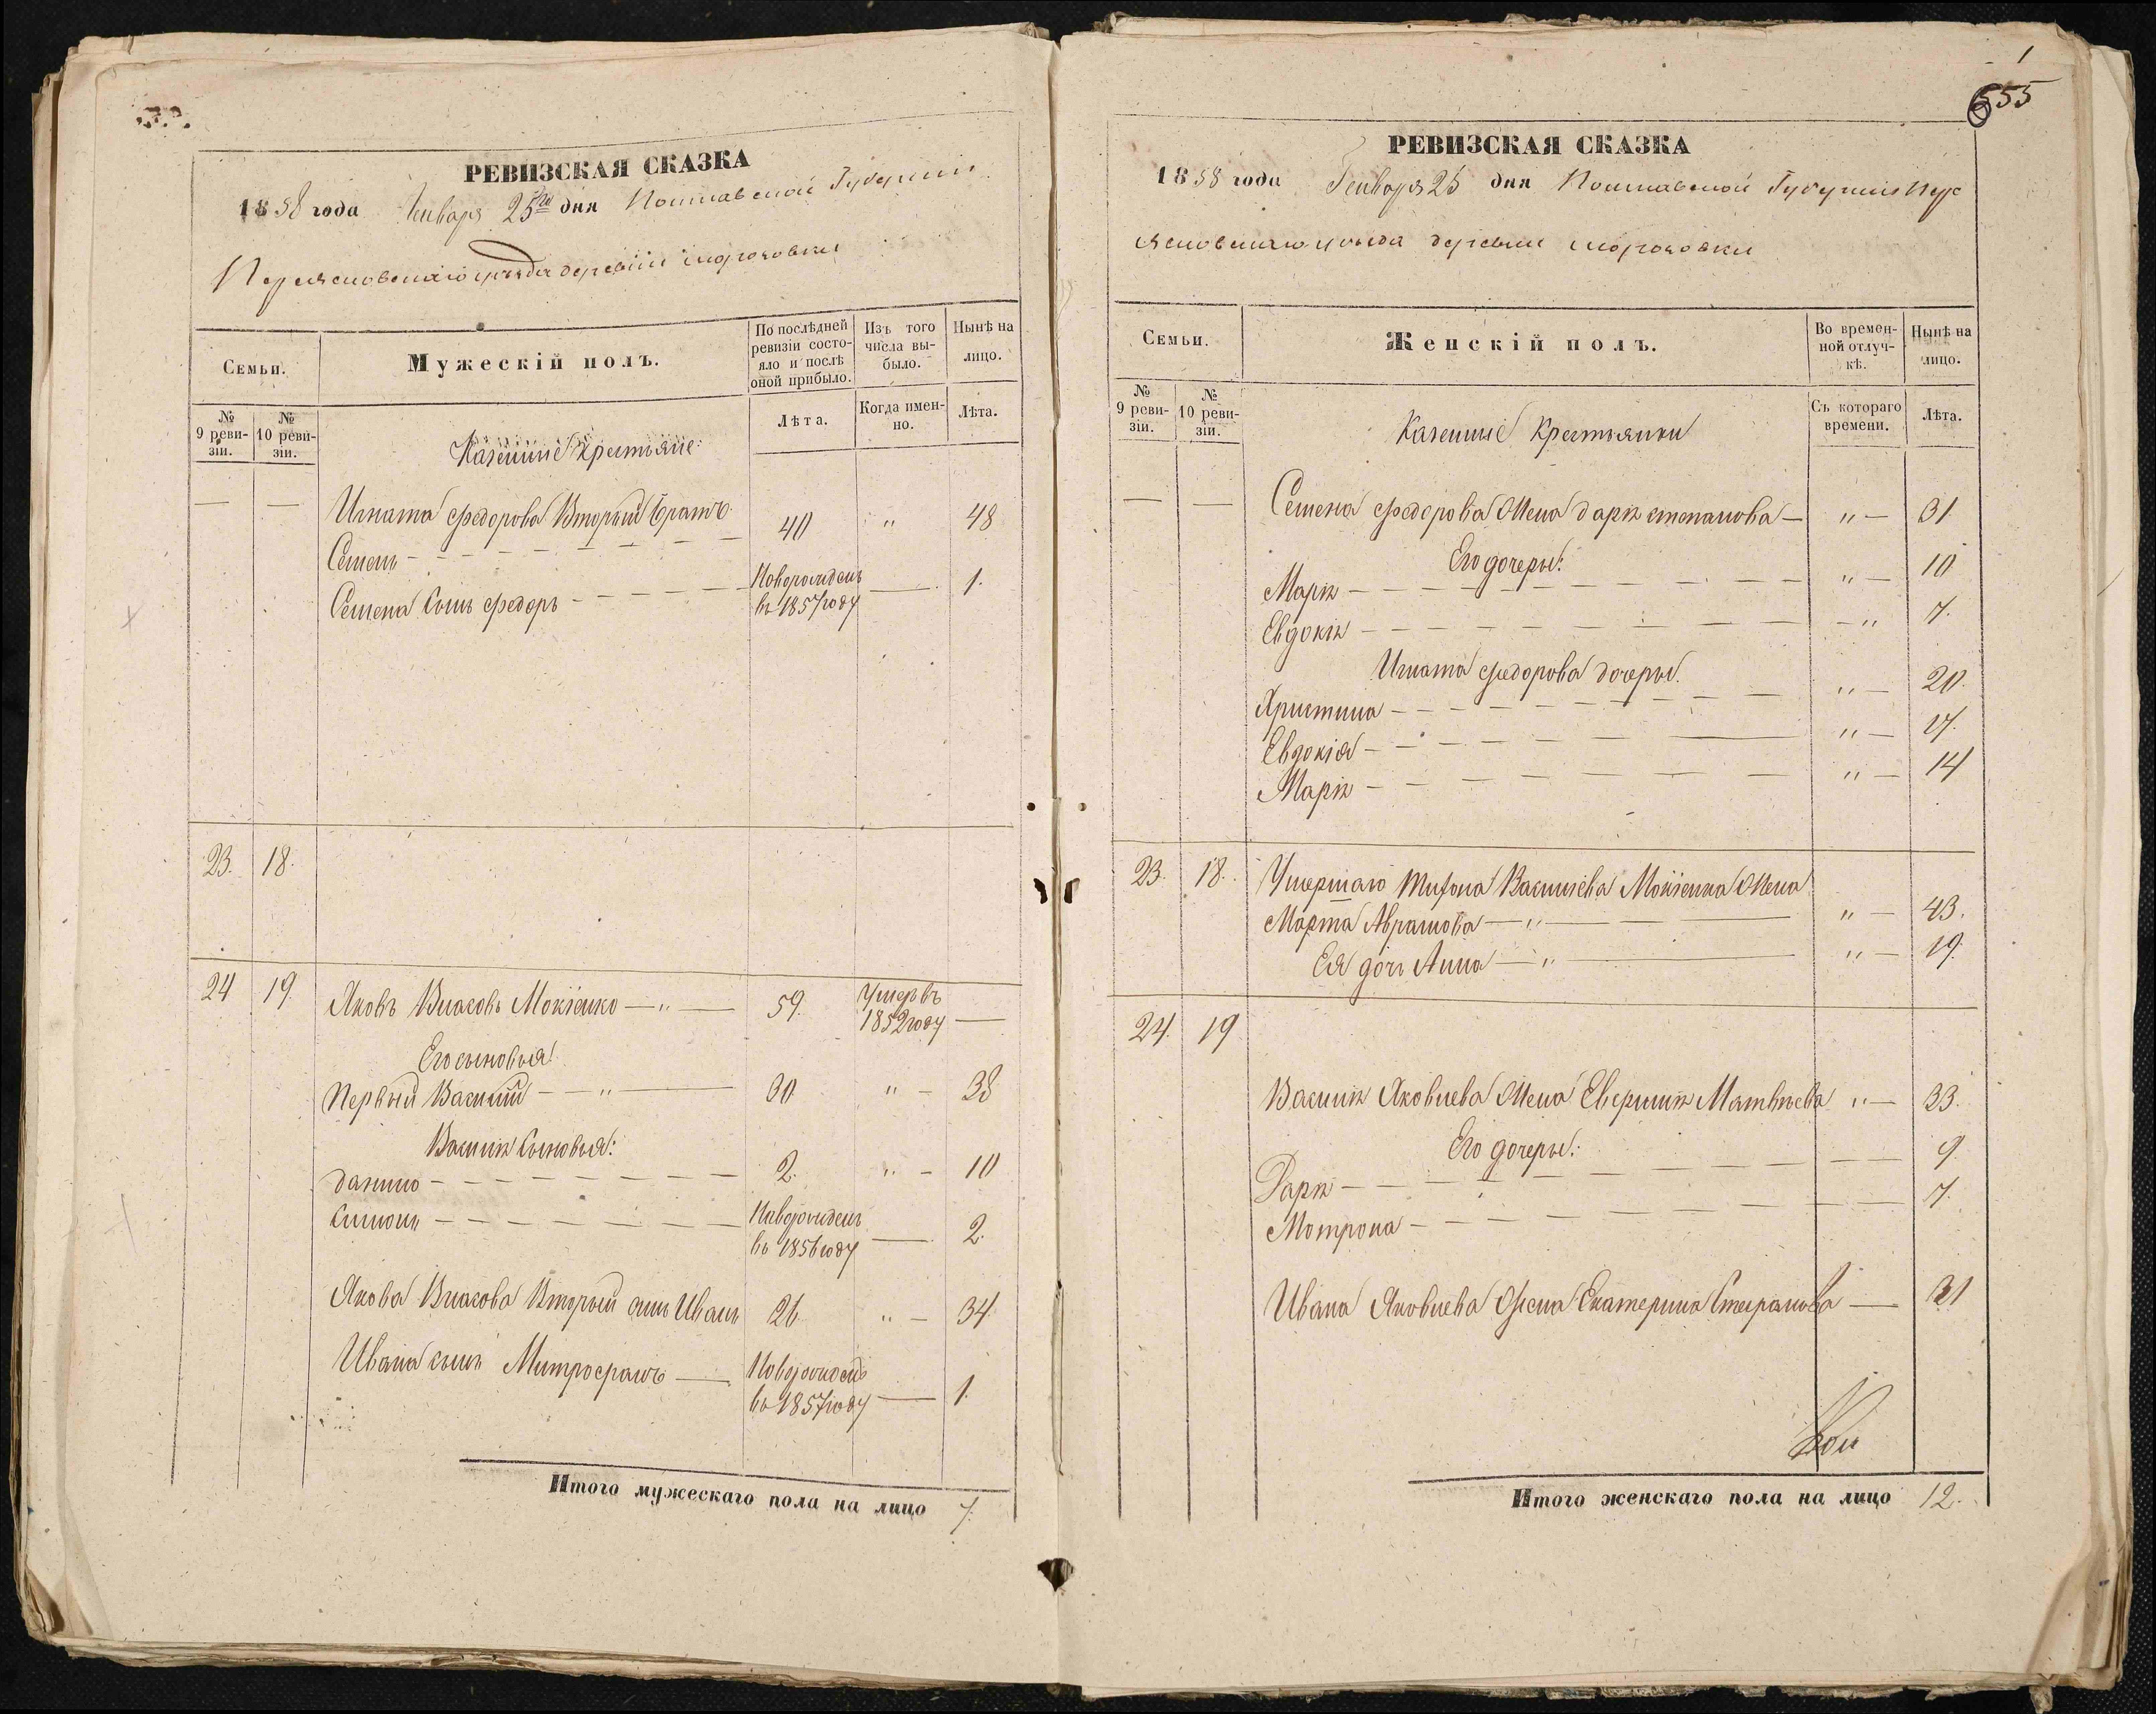 РЕВИЗСКАЯ СКАЗКА
1858 года Генваря 25го дня Полтавской Губернии
Переясловскаго уезда деревни
Семьи.
Мужескій полъ.
По послѣдней ревизіи состояло и послѣ оной прибыло.
Изъ того числа выбыло.
Нынѣ на лицо.
№ 9 ревизіи.
№ 10 ревизіи.
Лѣта.
Когда именно.
Лѣта.
Казенные крестьяне:
— — Игната Федорова Вторый братъ
Семенъ 40 " 48
Семена сынъ Федоръ Новорожденъ въ 1857 году — 1.
23. 18.
24 19. Яковъ Власовъ Мокіенко — " — 59. Умеръ въ 1852 году —
Его сыновья:
Первый Василий — " — 30 " — 38
Василія сыновья:
Данило 2. " — 10
Симонъ Новорожденъ въ 1856 году — 2.
Якова Власова Вторый сынъ Иванъ 26 " — 34.
Ивана сынъ Митрофанъ — Новорожденъ въ 1857 году — 1.
Итого мужескаго пола на лицо 7.
555
РЕВИЗСКАЯ СКАЗКА
1858 года Генваря 25 дня Полтавской Губернии Пере
ясловскаго уезда деревни
Семьи.
Женскій полъ.
Во временной отлучкѣ.
Нынѣ на лицо.
№ 9 ревизіи.
№ 10 ревизіи.
Съ котораго времени.
Лѣта.
Казенные Крестьянки
— — Семена Федорова Жена Дарія Степанова — " — 31.
Его дочеры:
Марія " — 10
Евдокія — " 7.
Игната Федорова дочеры.
Христина " — 20.
Евдокія " — 17.
Марія " — 14
23. 18. Умершаго Тихона Василіева Мокіенка Жена
Марта Аврамова — " — " — 43.
Ея дочь Анна — " — " — 19.
24. 19
Василія Яковлева Жена Евфимія Матвѣева " — 33.
Его дочеры:
Дарія 9
Мотрона 7.
Ивана Яковлева Жена Екатерина — 31
Итого женскаго пола на лицо 12.